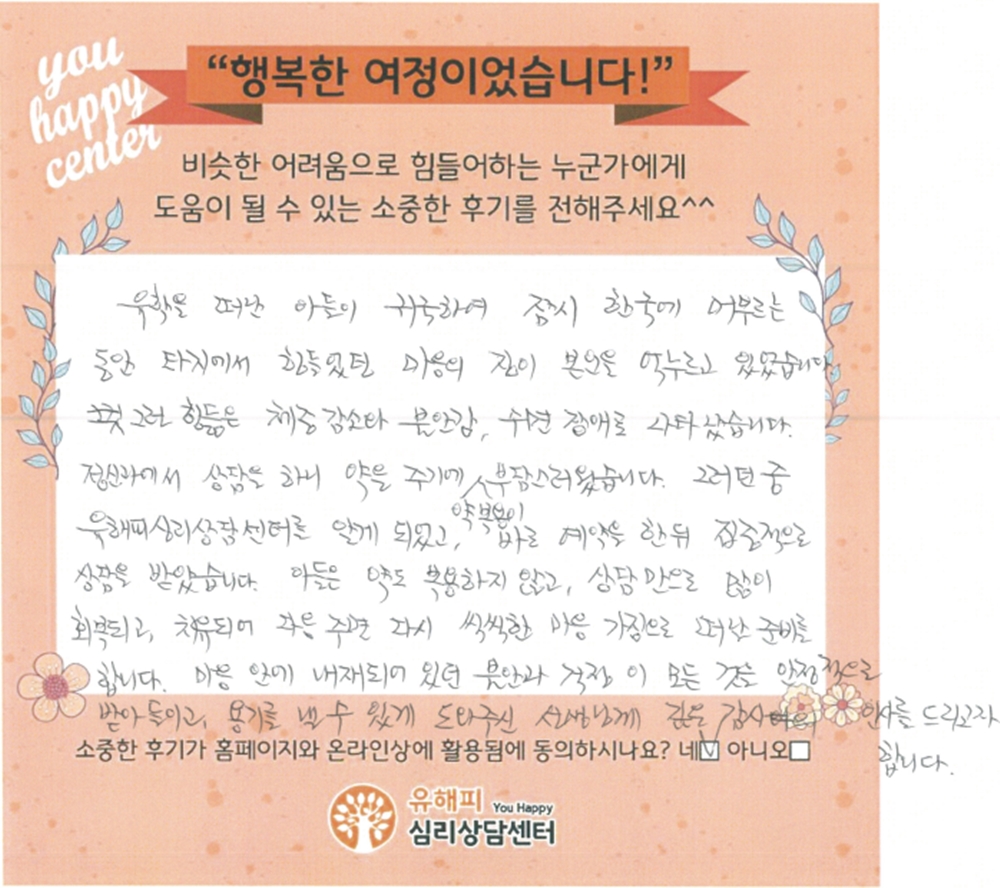 you
happy
center
“행복한 여정이었습니다!”
비슷한 어려움으로 힘들어하는 누군가에게
도움이 될 수 있는 소중한 후기를 전해주세요^^
유학을 떠난 아들이 귀국하여 잠시 한국에 머무르는
동안 타지에서 힘들었던 마음의 짐이 본인을 억누르고 있었습니다.
그런 힘듦은 체중감소나 불안감, 수면 장애로 나타났습니다.
정신과에서 상담을 하니 약을 주기에 부담스러웠습니다. 그러던 중
약복용이
유해피심리상담센터를 알게 되었고, 바로 예약을 한 뒤 집중적으로
상담을 받았습니다. 아들은 약도 복용하지 않고, 상담만으로 많이
회복되고, 치유되어 다음 주면 다시 씩씩한 마음 가짐으로 떠난 준비를
합니다. 마음 안에 내재되어 있던 불안과 걱정 이 모든 것을 안정적으로
받아들이고, 용기를 낼 수 있게 도와주신 선생님께 깊은 감사 인사를 드리고자
합니다.
소중한 후기가 홈페이지와 온라인상에 활용됨에 동의하시나요? 네☑ 아니오☐
유해피 You Happy
심리상담센터